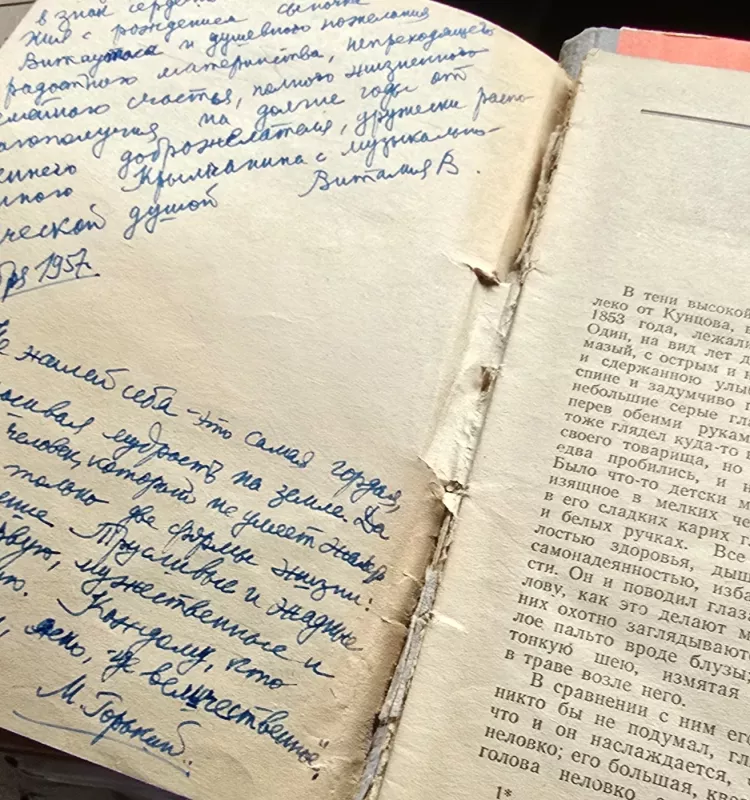 в знак серде
жия с рождением сыночка
Витаутаса и душевного пожелания
радостного материнства, непреходящего
мейного счастья, полного жизненного
агополучия на долгие годы от
еннего доброжелателя, дружески распо-
нного Крымчанина с музыкально-
ческой душой Виталия В.
бря 1957.
Не жалей себя – это самая гордая,
асивая мудрость на земле. Да
человек, который не умеет жалеть
только две формы жизни:
ение Трусливые и жадные
рвую, мужественные и
Каждому, кто
ясно, где величественное,"
М. Горький.
В тени высокой
леко от Кунцова, н
1853 года, лежали
Один, на вид лет д
мазый, с острым и н
и сдержанною улы
спине и задумчиво г
небольшие серые гла
перев обеими рукам
тоже глядел куда-то в
своего товарища, но
едва пробились, и н
Было что-то детски м
изящное в мелких че
в его сладких карих г
и белых ручках. Все
лостью здоровья, дыш
самонадеянностью, изба
сти. Он и поводил глаза
лову, как это делают м
них охотно заглядывают
лое пальто вроде блузы;
тонкую шею, измятая
в траве возле него.
В сравнении с ним его
никто бы не подумал, гл
что и он наслаждается,
неловко; его большая, ква
голова неловко
1*